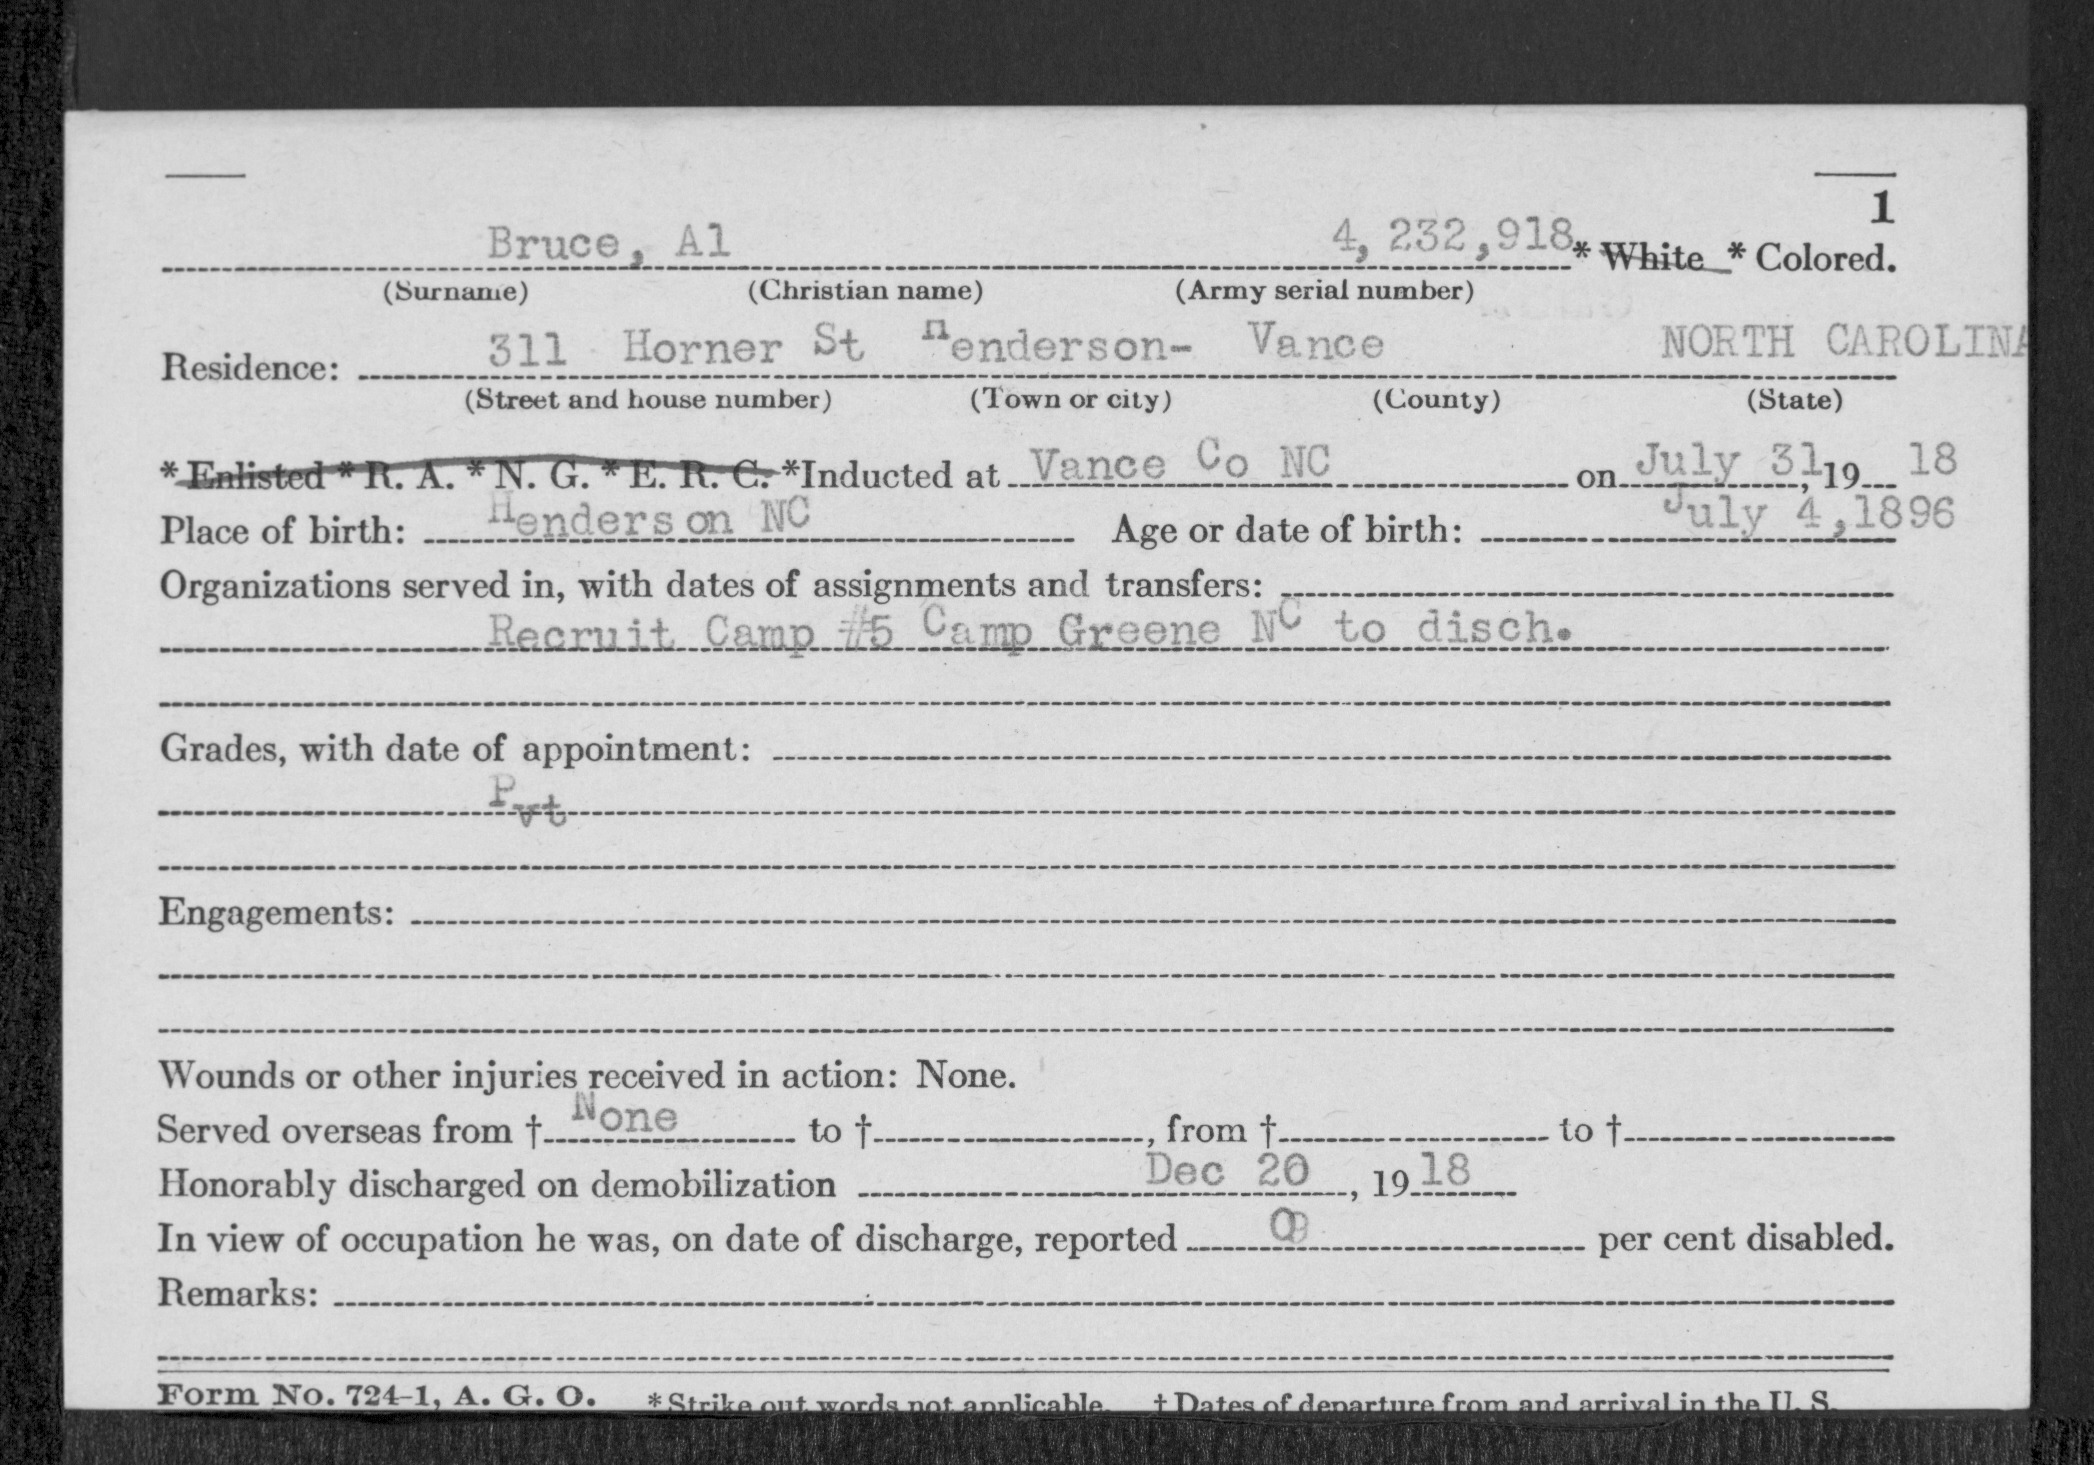 1
Bruce, Al 4, 232,918 * White * Colored.
(Surname) (Christian name) (Army serial number)
Residence: 311 Horner St Henderson- Vance NORTH CAROLINA
(Street and house number) (Town or city) (County) (State)
* Enlisted * R. A. * N. G. * E. R. C. *Inducted at Vance Co NC on July 31, 19 18
Place of birth: Henderson NC Age or date of birth: July 4,1896
Organizations served in, with dates of assignments and transfers:
Recruit Camp #5 Camp Greene NC to disch.
Grades, with date of appointment:
Pvt
Engagements:
Wounds or other injuries received in action: None.
Served overseas from † None to †, from † to †
Honorably discharged on demobilization Dec 20, 19 18
In view of occupation he was, on date of discharge, reported per cent disabled.
Remarks:
Form No. 724-1, A. G. O. * Strike out words not applicable. † Dates of departure from and arrival in the U. S.